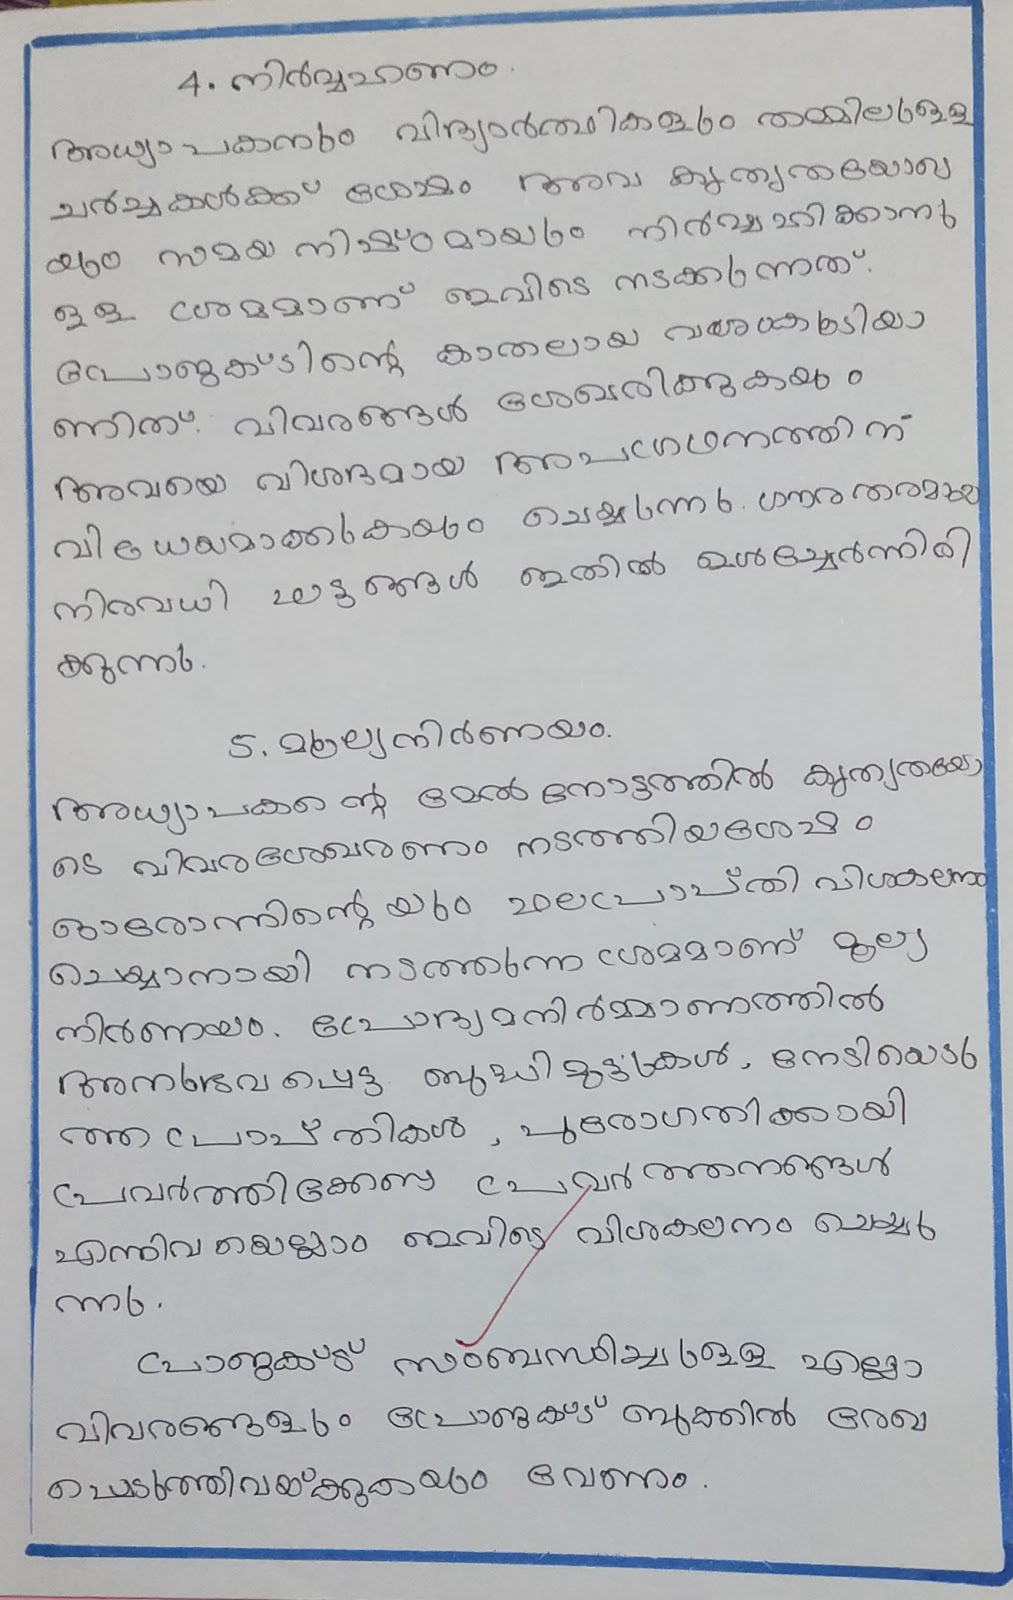 4. നിർവ്വഹണം.
അധ്യാപകനും വിദ്യാർത്ഥികളും തമ്മിലുള്ള
ചർച്ചകൾക്ക് ശേഷം അവ കൃത്യതയോടെ
യും സമയ നിഷ്ഠമായും നിർവ്വഹിക്കാനു
ള്ള ശ്രമമാണ് ഇവിടെ നടക്കുന്നത്.
പ്രോജക്ടിന്റെ കാതലായ വശംകൂടിയാ
ണിത്. വിവരങ്ങൾ ശേഖരിക്കുകയും
അവയെ വിശദമായ അപഗ്രഥനത്തിന്
വിധേയമാക്കുകയും ചെയ്യുന്നു. ഗൗരതരമായ
നിരവധി ഘട്ടങ്ങൾ ഇതിൽ ഉൾച്ചേർന്നിരി
ക്കുന്നു.
5. മൂല്യനിർണയം.
അധ്യാപകന്റെ മേൽനോട്ടത്തിൽ കൃത്യതയോ
ടെ വിവരശേഖരണം നടത്തിയശേഷം
ഓരോന്നിന്റെയും ഫലപ്രാപ്തി വിശകലനം
ചെയ്യാനായി നടത്തുന്ന ശ്രമമാണ് മൂല്യ
നിർണയം. പ്രോദ്യമനിർമ്മാണത്തിൽ
അനുഭവപ്പെട്ട ബുദ്ധിമുട്ടുകൾ, നേടിയെടു
ത്ത പ്രാപ്തികൾ, പുരോഗതിക്കായി
പ്രവർത്തിക്കേണ്ട പ്രവർത്തനങ്ങൾ
എന്നിവയെല്ലാം ഇവിടെ വിശകലനം ചെയ്യു
ന്നു.
പ്രോജക്ട് സംബന്ധിച്ചുള്ള എല്ലാ
വിവരങ്ങളും പ്രോജക്ട് ബുക്കിൽ രേഖ
പ്പെടുത്തിവയ്ക്കുകയും വേണം.